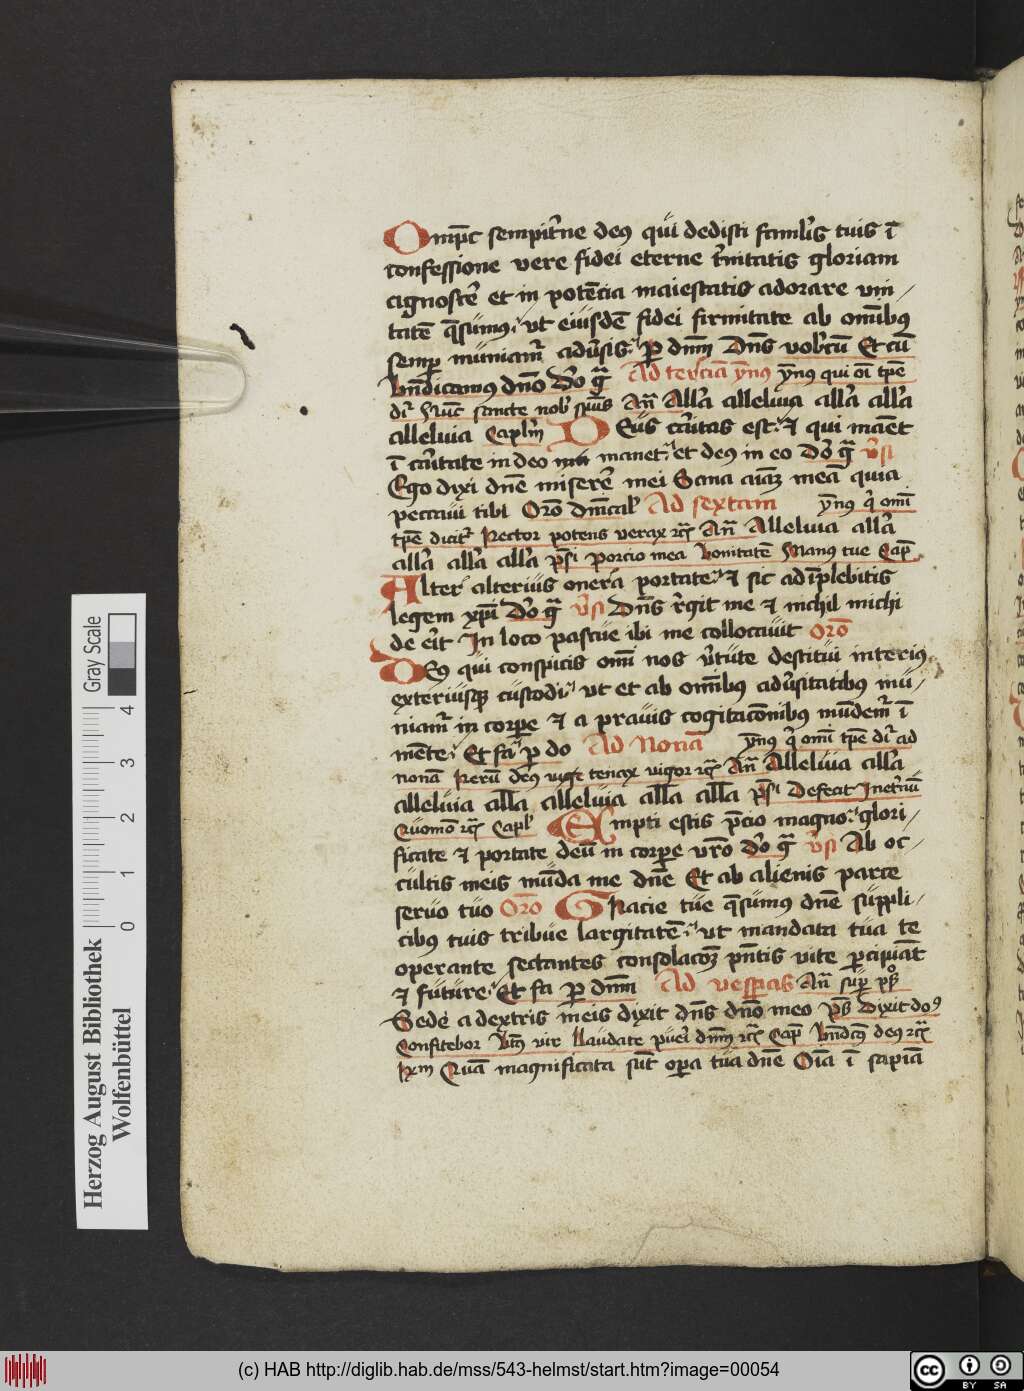 Omp̄c sempit̓ne deꝰ qui dedisti faml̓is tuis ī
confessione vere fidei eterne t̓nitatis gloriam
agnosce᷑ et in potēcia maiestatis adorare vni /
tatē q̄sumꝰ ut eiusdē fidei firmitate ab om̄ibꝰ
semꝑ muniam᷑ adu̓sis ꝑ dn̄m Dn̄s vobcū Et cū
bn̄dicamus dn̄o Do᷑ gr̄a Ad terciā ymꝰ ymꝰ qui oī tp̄e
di᷑ Nūc sancte nob̓ sp̄us An̄ All̓a alleluia all̓a all̓a
alleluia Capl̓m Deus ca̓itas est ⁊ qui manēt
ī ca̓itate in deo manet et deꝰ in eo Do᷑ gr̄a v̓si
Ego dixi dn̄e misere᷑ mei Sana aīaꝫ meā quia
peccaui tibi Orō dn̄ical̓ Ad sextam ymꝰ q̓ om̄i
tp̄e dicit᷑ Rector potens verax rc̄ An̄ Alleluia all̓a
all̓a all̓a all̓a p̄s̓i porcio mea bonitatē Manus tue Cap̄
Alter alterius onera portate ⁊ sic adīplebitis
legem xp̄i Do᷑ gr̄a v̓si Dn̄s r̓git me ⁊ nichil michi
de e̓it In loco pascue ibi me collocauit Orō
Deꝰ qui conspicis om̄i nos v̓tute destitui interiꝰ
exteriusqꝫ custodi ut et ab om̄ibꝰ adu̓sitatibꝰ mu /
niam᷑ in corꝑe ⁊ a prauis cogitacōnibꝰ mūdem᷑ ī
mēte Et fa ꝑ do Ad Nonā ymꝰ q̓ om̄i tp̄e di᷑ ad
nonā Rerū deꝰ tenax vigor rc̄ An̄ Alleluia all̓a
alleluia all̄a alleluia all̄a all̄a p̄s̓i Defecit Inet̓nū
Quomō rc̄ Capl̓ Empti estis p̄cio magno glori /
ficate ⁊ portate deū in corꝑe vr̄o Do᷑ gr̄a v̓si Ab oc /
cultis meis mūda me dn̄e Et ab alienis parce
seruo tuo Orō Gracie tue q̄sumus dn̄e suppli /
cibꝰ tuis tribue largitatē ut mandata tua te
operante sectantes consolacōꝫ pn̄tis vite ꝑcipiāt
⁊ future Et fa ꝑ dn̄m Ad vesꝑas An̄ suꝑ ps̄
Sede a dextris meis dixit dn̄s dn̄o meo p̄s Dixit doꝰ
Confitebor Bt̄ꝰ vir Laudate pueri dn̄m rc̄ Cap̄ Bn̄dc̄ꝰ deꝰ rc̄
Quā magnificata sūt oꝑa tua dn̄e Oīa ī sapiā
Herzog August Bibliothek
Wolfenbüttel
Gray Scale
0 1 2 3 4
(c) HAB http://diglib.hab.de/mss/543-helmst/start.htm?image=00054
cc BY SA